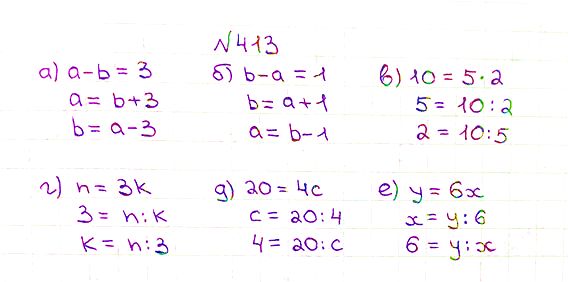 №413
а) a-b = 3
a = b+3
b = a-3
б) b-a = 1
b = a+1
a = b-1
в) 10 = 5·2
5 = 10:2
2 = 10:5
г) n = 3k
3 = n:k
k = n:3
д) 20 = 4c
c = 20:4
4 = 20:c
е) y = 6x
x = y:6
6 = y:x